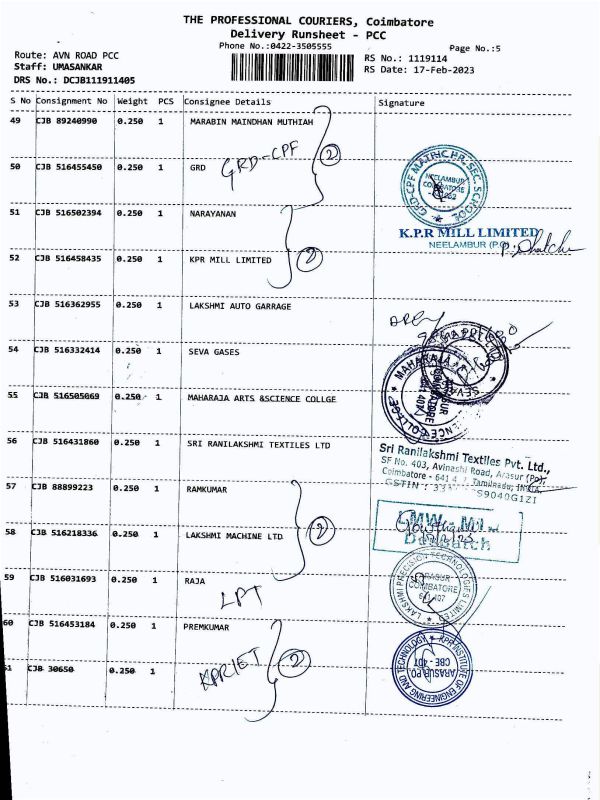 THE PROFESSIONAL COURIERS, Coimbatore
Delivery Runsheet - PCC
Phone No.:0422-3505555
Page No.:5
Route: AVN ROAD PCC
Staff: UMASANKAR
DRS No.: DCJB111911405
RS No.: 1119114
RS Date: 17-Feb-2023
S No Consignment No Weight PCS Consignee Details Signature
49 CJB 89240990 0.250 1 MARABIN MAINDHAN MUTHIAH
50 CJB 516455450 0.250 1 GRD
GRD-CPF 2
GRD-CPF MATRIC.HR.SEC.SCHOOL
NEELAMBUR
COIMBATORE
51 CJB 516502394 0.250 1 NARAYANAN
K.P.R MILL LIMITED
NEELAMBUR (P.O)
52 CJB 516458435 0.250 1 KPR MILL LIMITED
2
53 CJB 516362955 0.250 1 LAKSHMI AUTO GARRAGE
54 CJB 516332414 0.250 1 SEVA GASES
55 CJB 516505069 0.250 1 MAHARAJA ARTS &SCIENCE COLLGE
56 CJB 516431860 0.250 1 SRI RANILAKSHMI TEXTILES LTD
Sri Ranilakshmi Textiles Pvt. Ltd.,
SF No. 403, Avinashi Road, Arasur (Po),
Coimbatore - 641 4 Tamilnadu, INDIA.
GSTIN : 33 S9040G1ZI
57 CJB 88899223 0.250 1 RAMKUMAR
58 CJB 516218336 0.250 1 LAKSHMI MACHINE LTD
2
LMW
Despatch
59 CJB 516031693 0.250 1 RAJA
LPT
LAKSHMI PRECISION TECHNOLOGIES LIMITED
ARASUR
COIMBATORE
641 407
60 CJB 516453184 0.250 1 PREMKUMAR
KPRIET 2
61 CJB 30650 0.250 1
KPR INSTITUTE OF ENGINEERING AND TECHNOLOGY
ARASUR.PO
CBE - 407